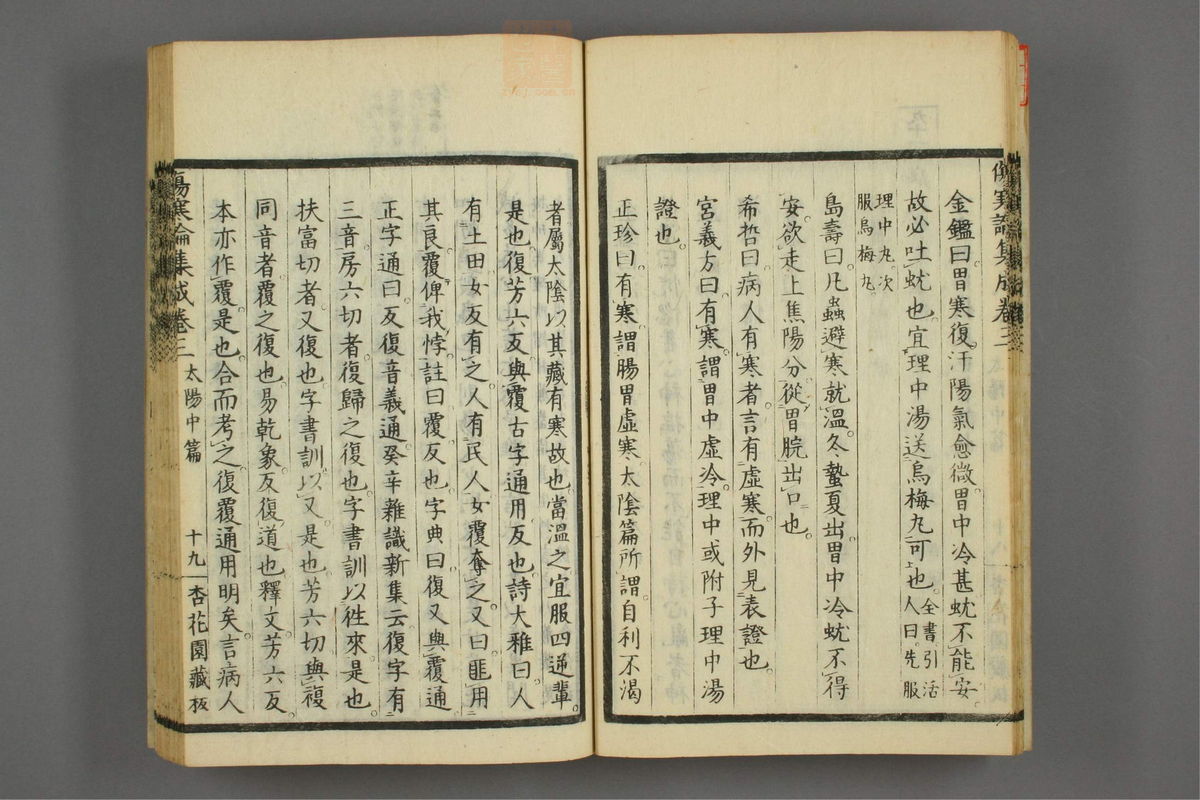 傷寒論集成卷三
金鑑曰胃寒復汗陽氣愈微胃中冷甚蚘不能安
故必吐蚘也宜理中湯送烏梅丸可也全書引活人曰先服
理中丸次服烏梅丸
島壽曰凡蟲避寒就溫冬蟄夏出胃中冷蚘不得
安欲走上焦陽分從胃脘出口也
希哲曰病人有寒者言有虛寒而外見表證也
宮義方曰有寒謂胃中虛冷理中或附子理中湯
證也
正珍曰有寒謂腸胃虛寒太陰篇所謂自利不渴
者屬太陰以其藏有寒故也當溫之宜服四逆輩
是也復芳六反與覆古字通用反也詩大雅曰人
有土田女反有之人有民人女覆奪之又曰匪用
其良覆俾我悖註曰覆反也字典曰復又與覆通
正字通曰反復音義通癸辛雜識新集云復字有
三音房六切者復歸之復也字書訓以往來是也
扶富切者又復也字書訓以又是也芳六切與複
同音者覆之復也易乾象反復道也釋文芳六反
本亦作覆是也合而考之復覆通用明矣言病人
傷寒論集成卷三 太陽中篇 十九 杏花園藏板